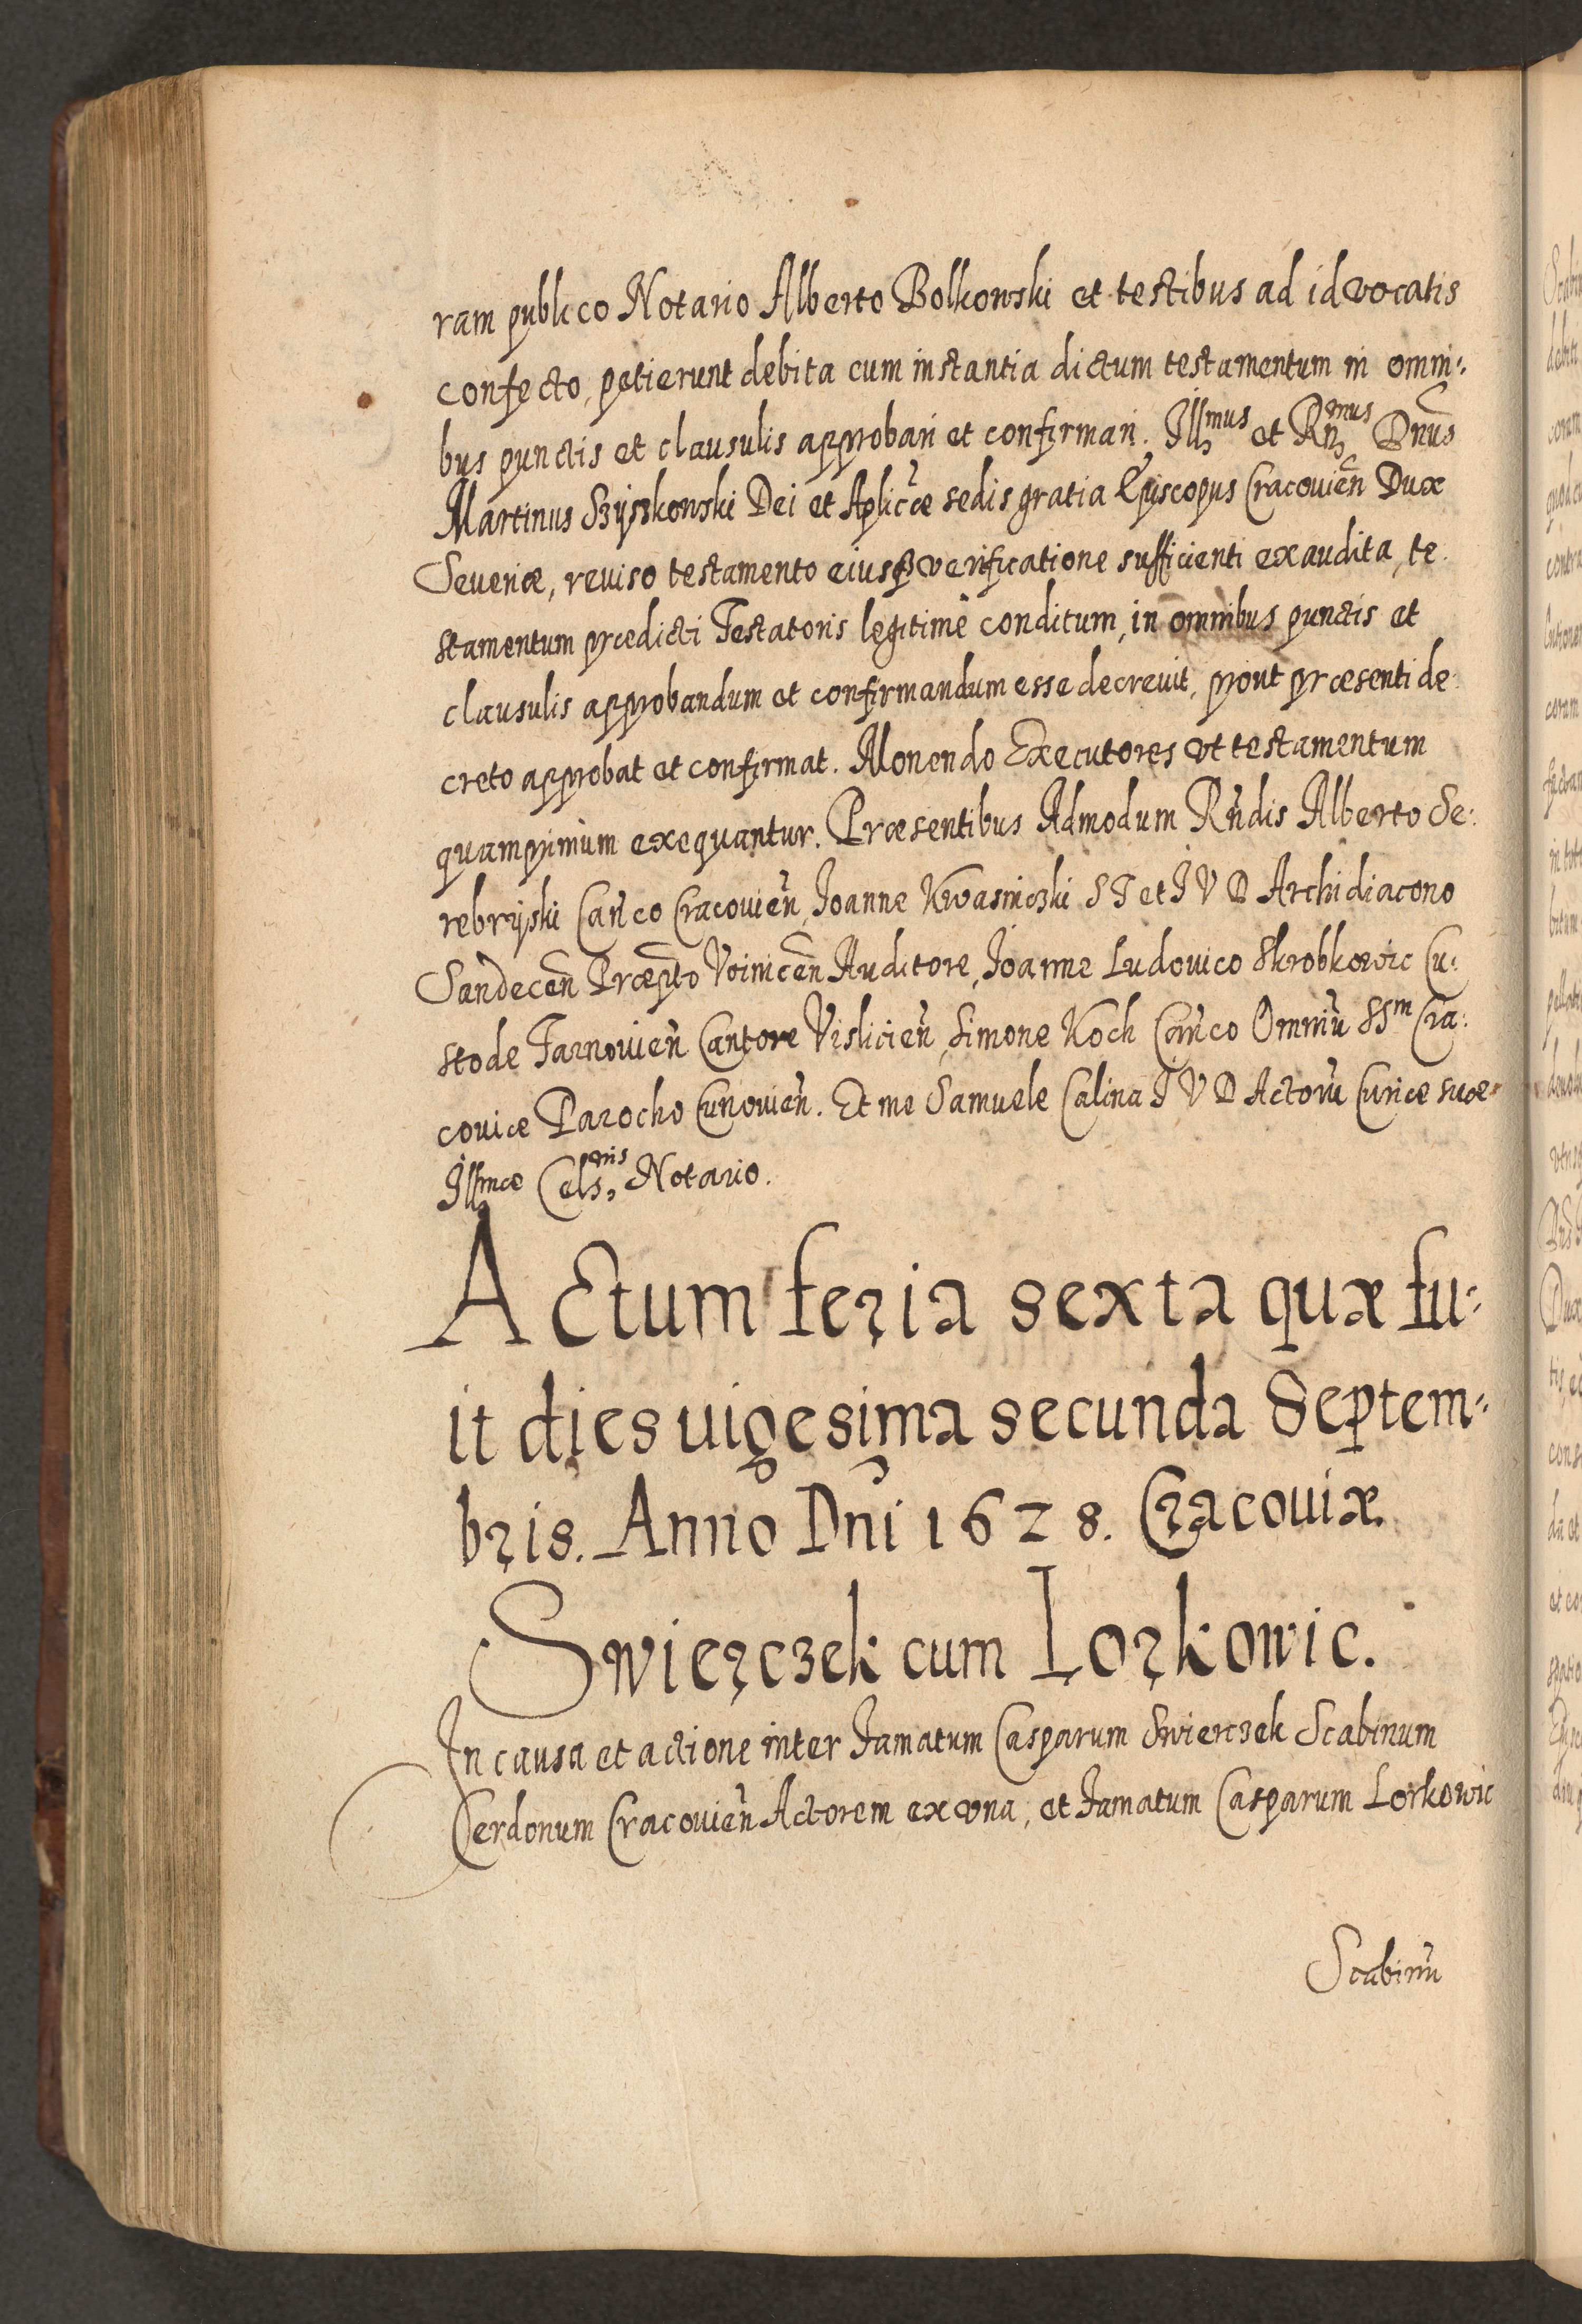 ram publico Notario Alberto Bolkowski et testibus ad id vocatis
confecto, petierunt debita cum instantia dictum testamentum in omni-
bus punctis et clausulis approbari et confirmari. Illmus et Rn̄mus Dnūs
Martinus Szyszkowski Dei et Aplicæ sedis gratia Episcopus Cracovien̄ Dux
Severiæ, reviso testamento eiusq verificatione sufficienti exaudita, te
stamentum prædicti Testatoris legitimè conditum, in omnibus punctis et
clausulis approbandum et confirmandum esse decrevit, prout præsenti de
creto approbat et confirmat. Monendo Executores vt testamentum
quamprimum exequantur. Præsentibus Admodum Rn̄dis Alberto Se:
rebryski Can̄co Cracouien̄, Joanne Kwasniczki S T et I V D Archidiacono
Sandecen̄ Præpto Voinicen̄ Auditore, Joanne Ludovico Skrobkowic Cu:
stode Tarnouien̄ Cantore Vislicien̄, Simone Koch Can̄co Omniū SSm Cra:
couiæ Parocho Cunouien̄. Et me Samuele Calina I V D Actorū Curiæ suæ
Illmæ Cels,nis Notario.
Actum feria sexta quæ fu-
it dies uigesima secunda Septem-
bris. Anno Dn̄i 1628. Cracouiæ.
Swierczek cum Lorkowic.
In causa et actione inter famatum Casparum Swierczek Scabinum
Cerdonum Cracouien̄ Actorem ex vna, et famatum Casparum Lorkowic
Scabinū